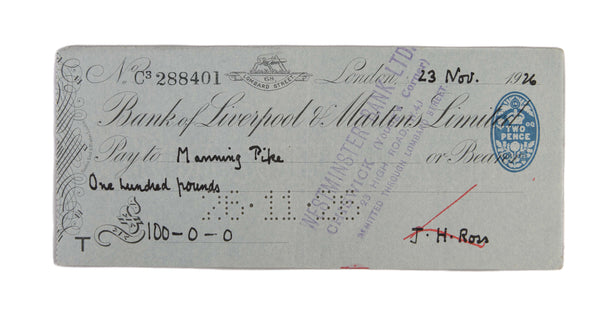 No. C3 288401
68
LOMBARD STREET
London, 23 Nov. 1926
Bank of Liverpool & Martins Limited
Pay to Manning Pike or Bearer
One hundred pounds
TWO PENCE
26.11.26
T £100-0-0
J. H. Ross
WESTMINSTER BANK LTD.
CHISWICK (Young's Corner)
HIGH ROAD, W.4
REMITTED THROUGH LOMBARD STREET